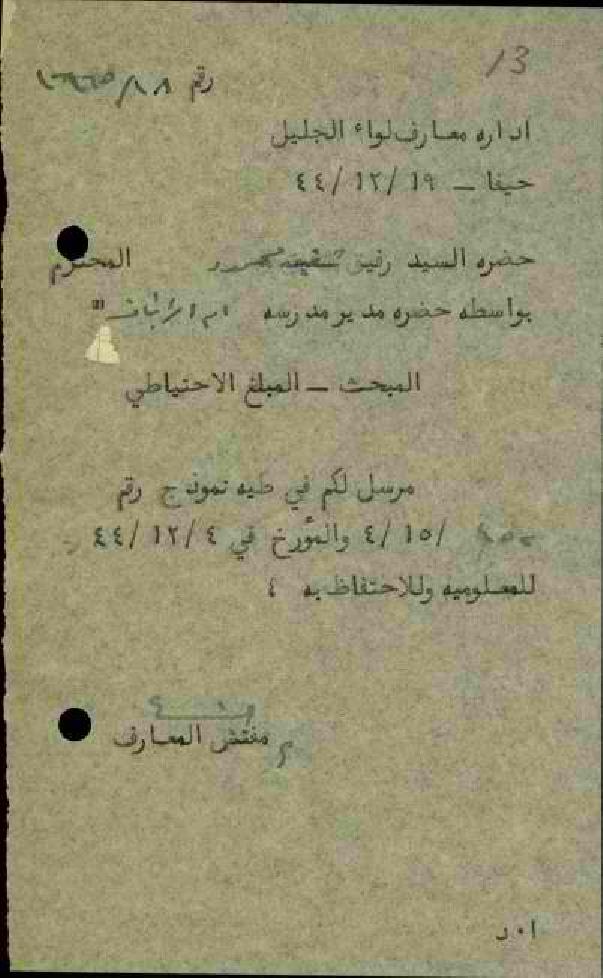 13
رقم
اداره معارف لواء الجليل
حيفا – ١٩ /١٢ /٤٤
حضره السيد رفيق المحترم
بواسطه حضره مدير مدرسه
المبحث – المبلغ الاحتياطي
مرسل لكم في طيه نموذج رقم
/١٥ /٤ والمؤرخ في ٤ /١٢ /٤٤
للمعلوميه وللاحتفاظ به ٤
مفتش المعارف
ا ٠ د